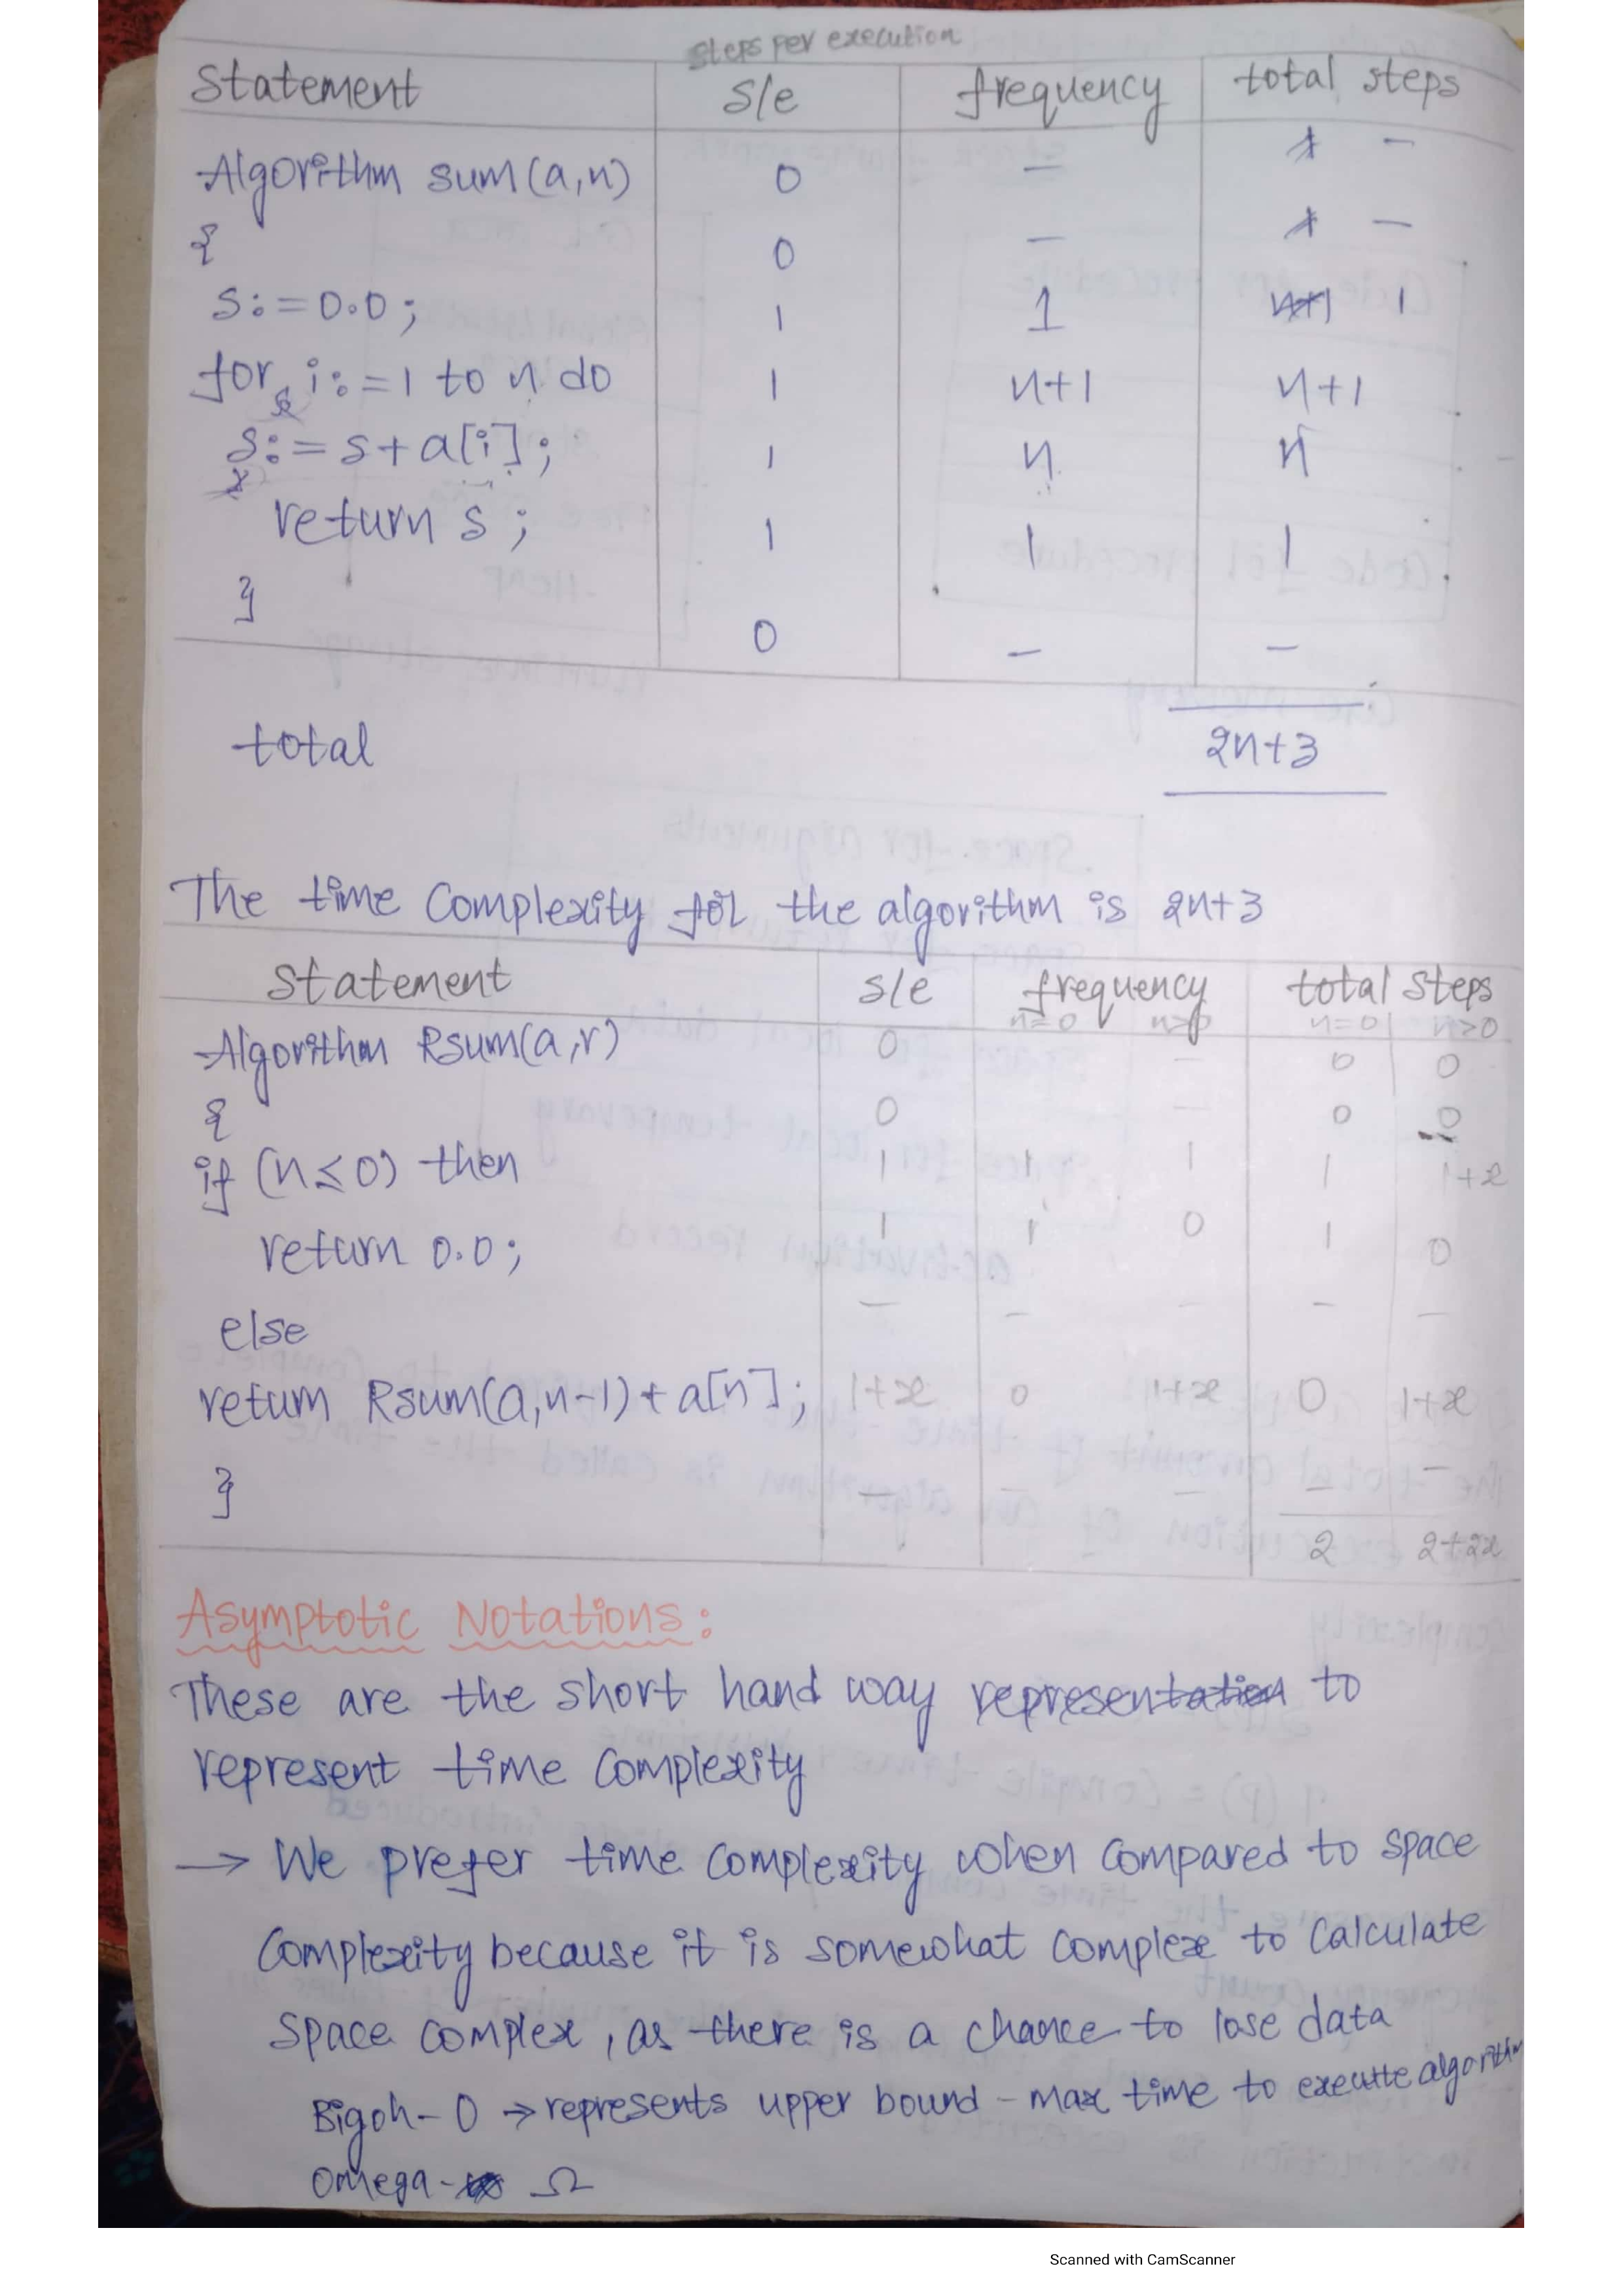 steps per execution
Statement s/e frequency total steps
Algorithm sum(a,n) 0 — —
{ 0 — —
s:=0.0; 1 1 n+1 1
for i:=1 to n do 1 n+1 n+1
s:=s+a[i]; 1 n n
return s; 1 1 1
} 0 — —
total 2n+3
The time complexity for the algorithm is 2n+3
Statement s/e frequency total steps
n=0 n>0 n=0 n>0
Algorithm Rsum(a,r) 0 — 0 0
{ 0 — 0 0
if (n≤0) then 1 1 1 1 1+x
return 0.0; 1 1 0 1 0
else — — — — —
return Rsum(a,n-1)+a[n]; 1+x 0 1+x 0 1+x
} — — — — —
2 2+2x
Asymptotic Notations:
These are the short hand way representation to
represent time complexity
→ We prefer time complexity when compared to space
complexity because it is somewhat complex to calculate
space complex, as there is a chance to lose data
Bigoh - O → represents upper bound - max time to executte algorithm
Omega - Ω
Scanned with CamScanner